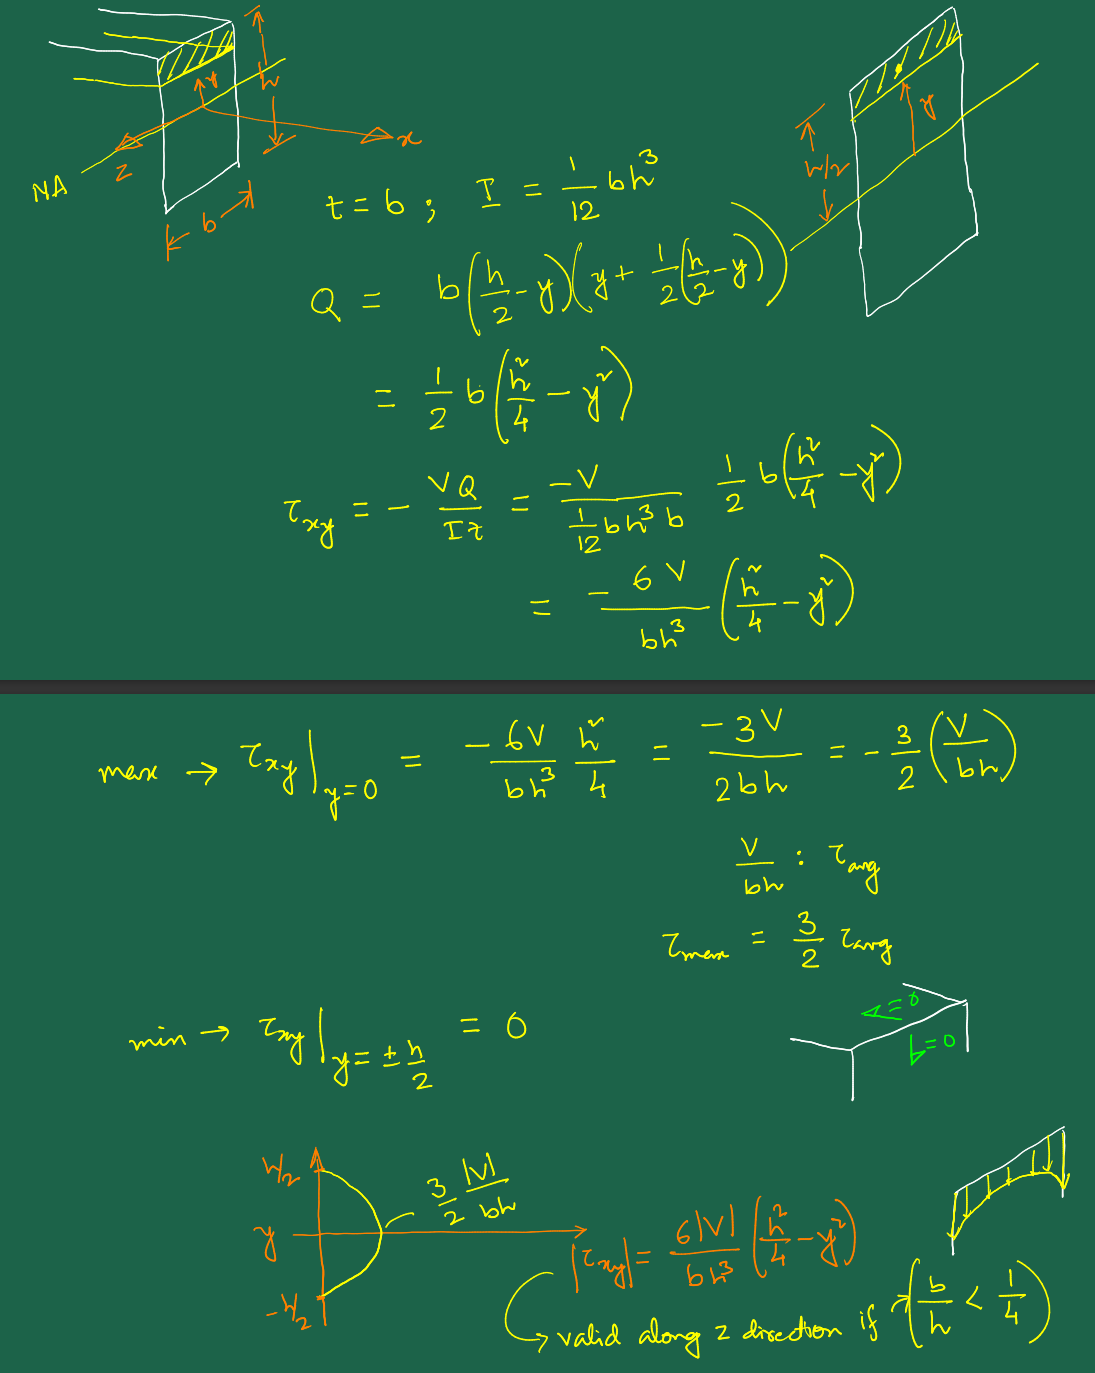 h
y
x
z
NA
b
y
h/2
t = b ; I = 1/12 bh³
Q = b(h/2 - y)(y + 1/2(h/2 - y))
= 1/2 b(h²/4 - y²)
τxy = - VQ/It = -V/(1/12 bh³ b) 1/2 b(h²/4 - y²)
= -6V/bh³ (h²/4 - y²)
max → τxy|y=0 = -6V/bh³ h²/4 = -3V/2bh = -3/2 (V/bh)
V/bh : τavg
τmax = 3/2 τavg
min → τxy|y=±h/2 = 0
=0
=0
h/2
y
-h/2
3/2 |V|/bh
|τxy| = 6|V|/bh³ (h²/4 - y²)
→ valid along z direction if (b/h < 1/4)